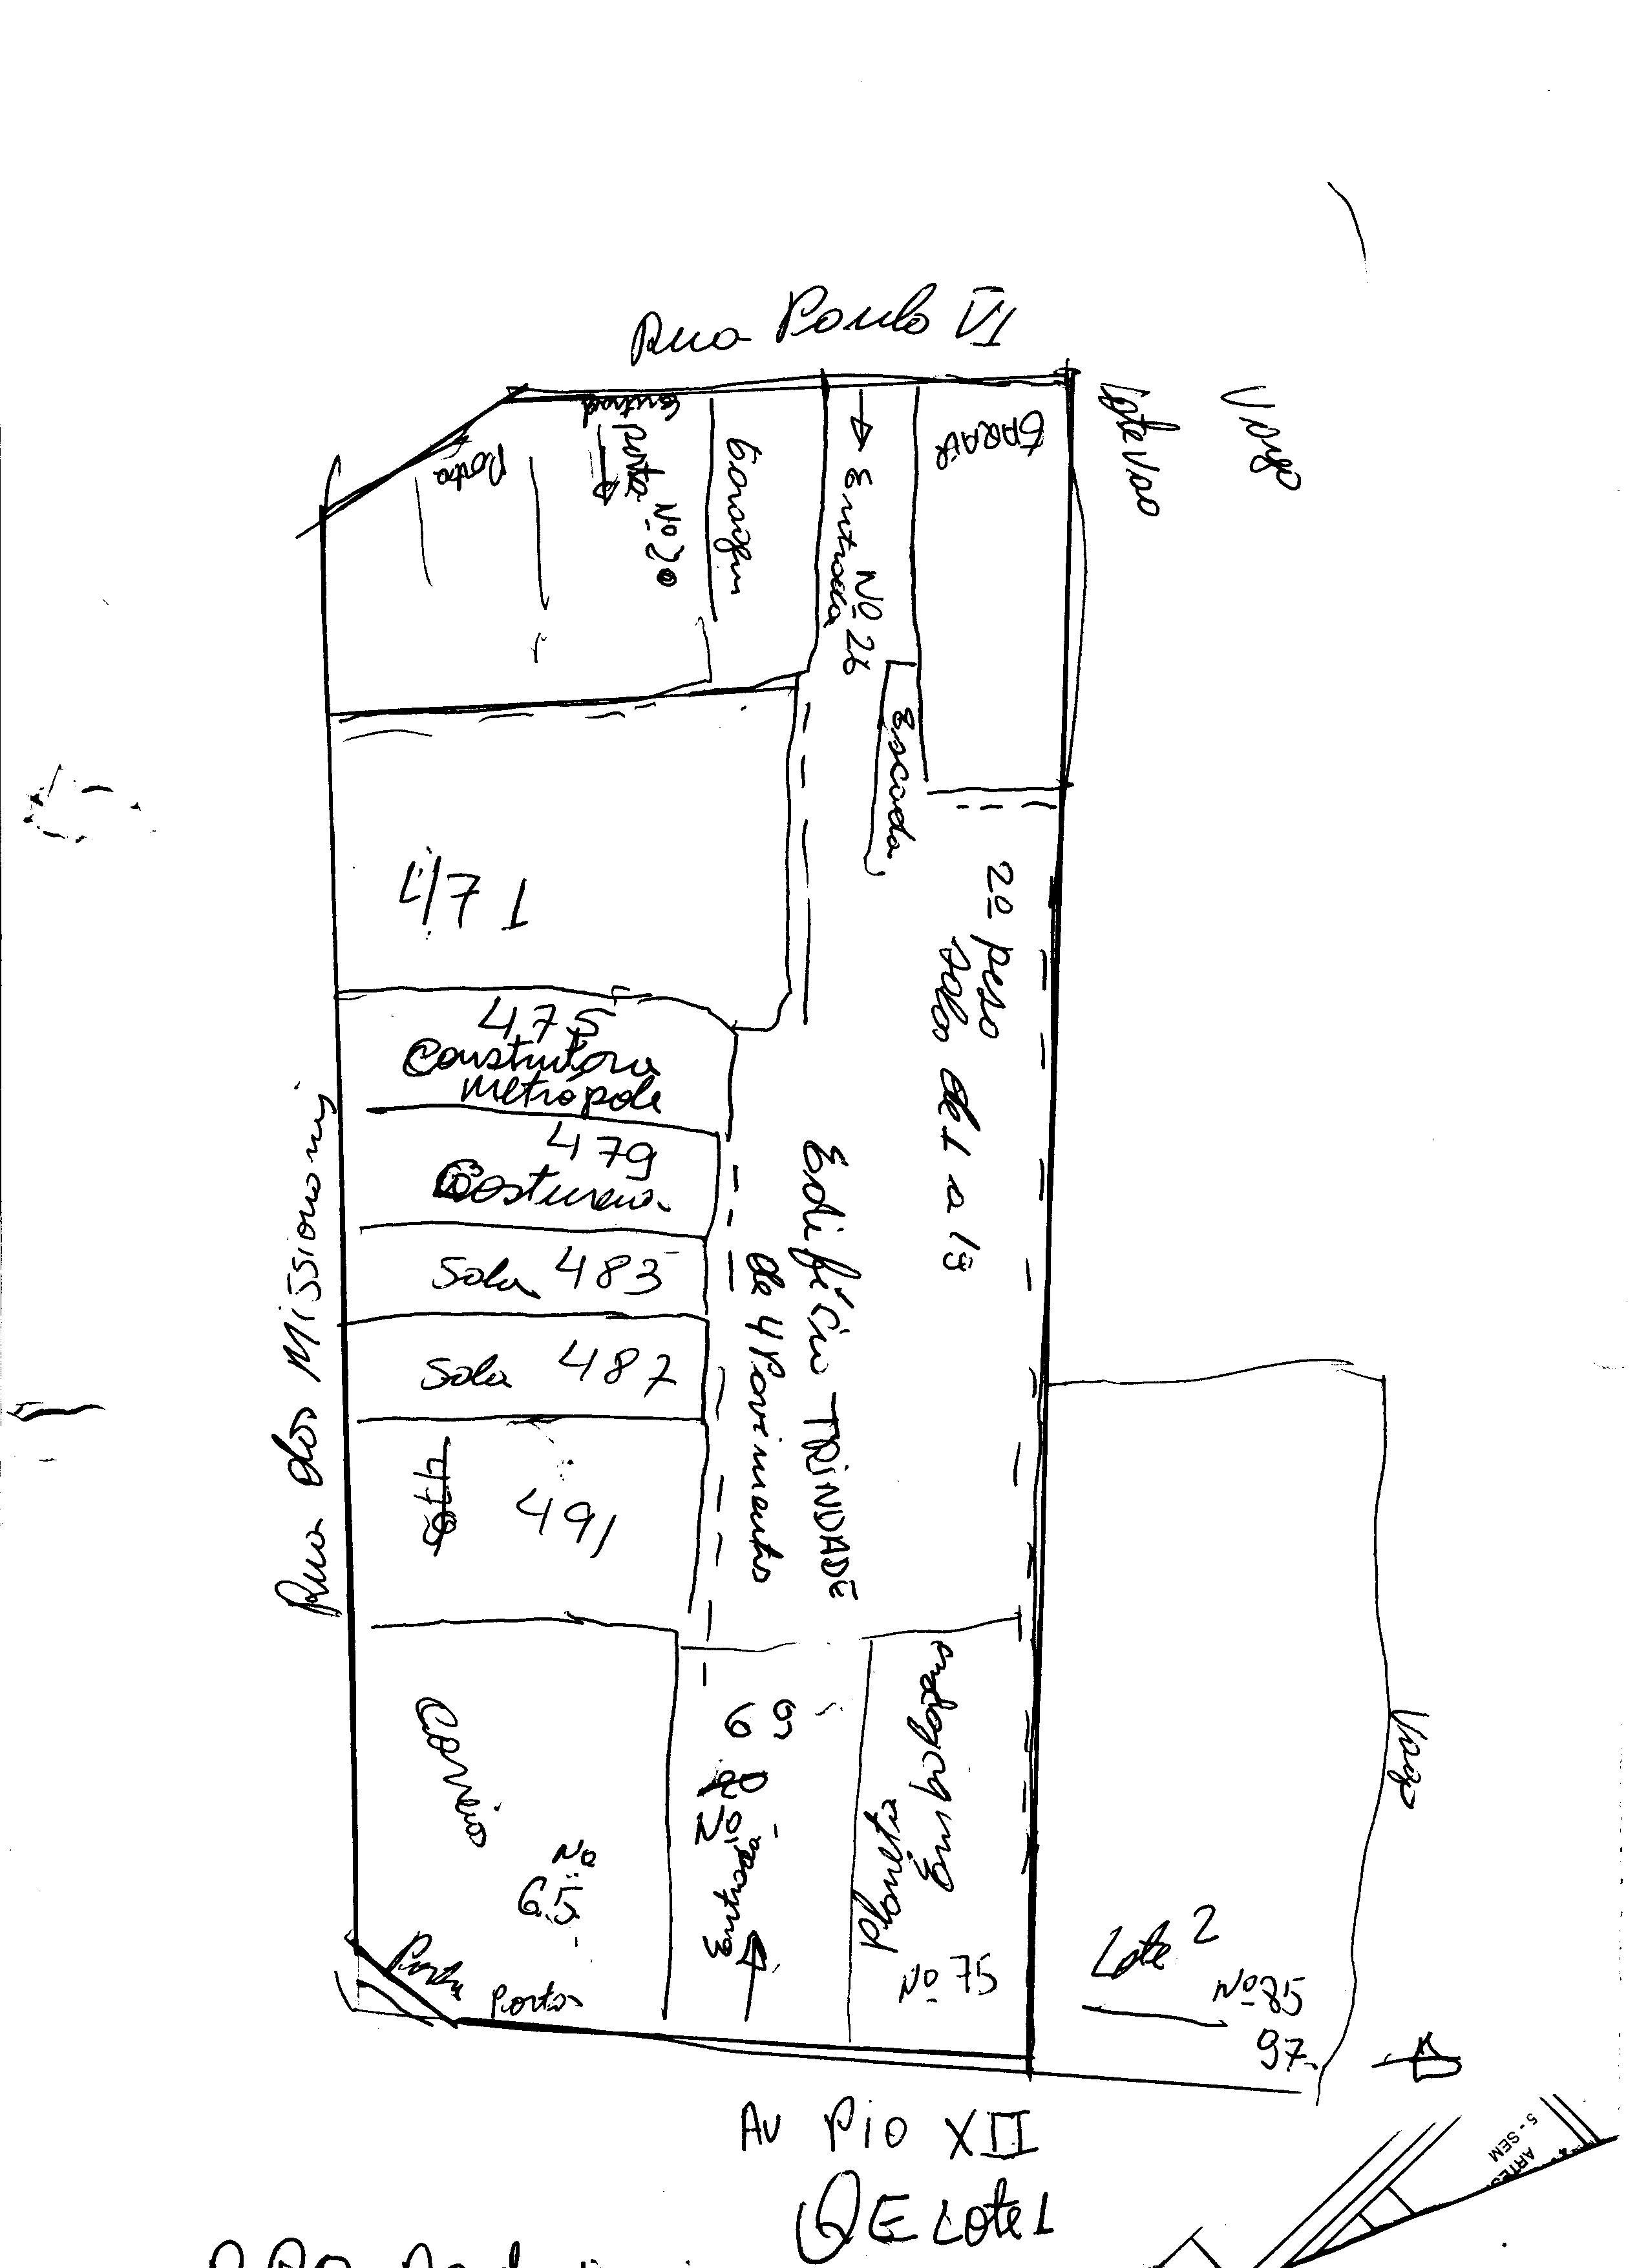 Rua Paulo VI
Vago
Lote Vao
Entrad
Porta
porta
Nº 20
Garagem
Entrada
Nº 26
GARAG
Escada
471
2º piso
salas de 1 a 13
475
Construtora
Metrópole
479
Costureira
Sala 483
Sala 487
491
Rua dos Missionari
Edifício TRINDADE
de 4 Pavimentos
Correio
Nº
65
Porta
Porta
69
Nº
Entrada
Planeta
Embalagens
Nº 75
Vago
Lote 2
Nº 85
97
Av Pio XII
QE Lote 1
5 - SEM
ARTES